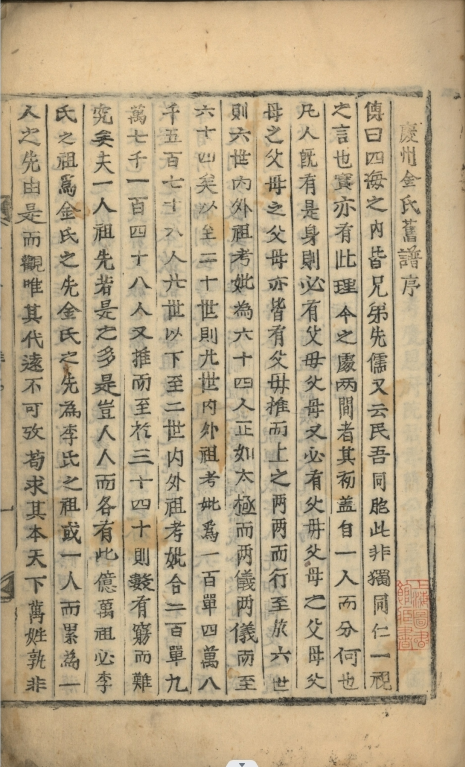 慶州金氏舊譜序
傳曰四海之內皆兄弟先儒又云民吾同胞此非獨同仁一視
之言也實亦有此理今之處兩間者其初盖自一人而分何也
凡人旣有是身則必有父母父母又必有父母父母之父母父
母之父母之父母亦皆有父母推而上之兩兩而行至於六世
則六世內外祖考妣為六十四人正如太極而兩儀兩儀而至
六十四矣以至二十世則卄世內外祖考妣爲一百單四萬八
千五百七十六人卄世以下至二世內外祖考妣合二百單九
萬七千一百四十八人又推而至於三十四十則數有窮而難
究矣夫一人祖先若是之多是豈人人而各有此億萬祖必李
氏之祖爲金氏之先金氏之先為李氏之祖或一人而累為一
人之先由是而觀唯其代遠不可攷苟求其本天下萬姓孰非
上海圖書館藏書